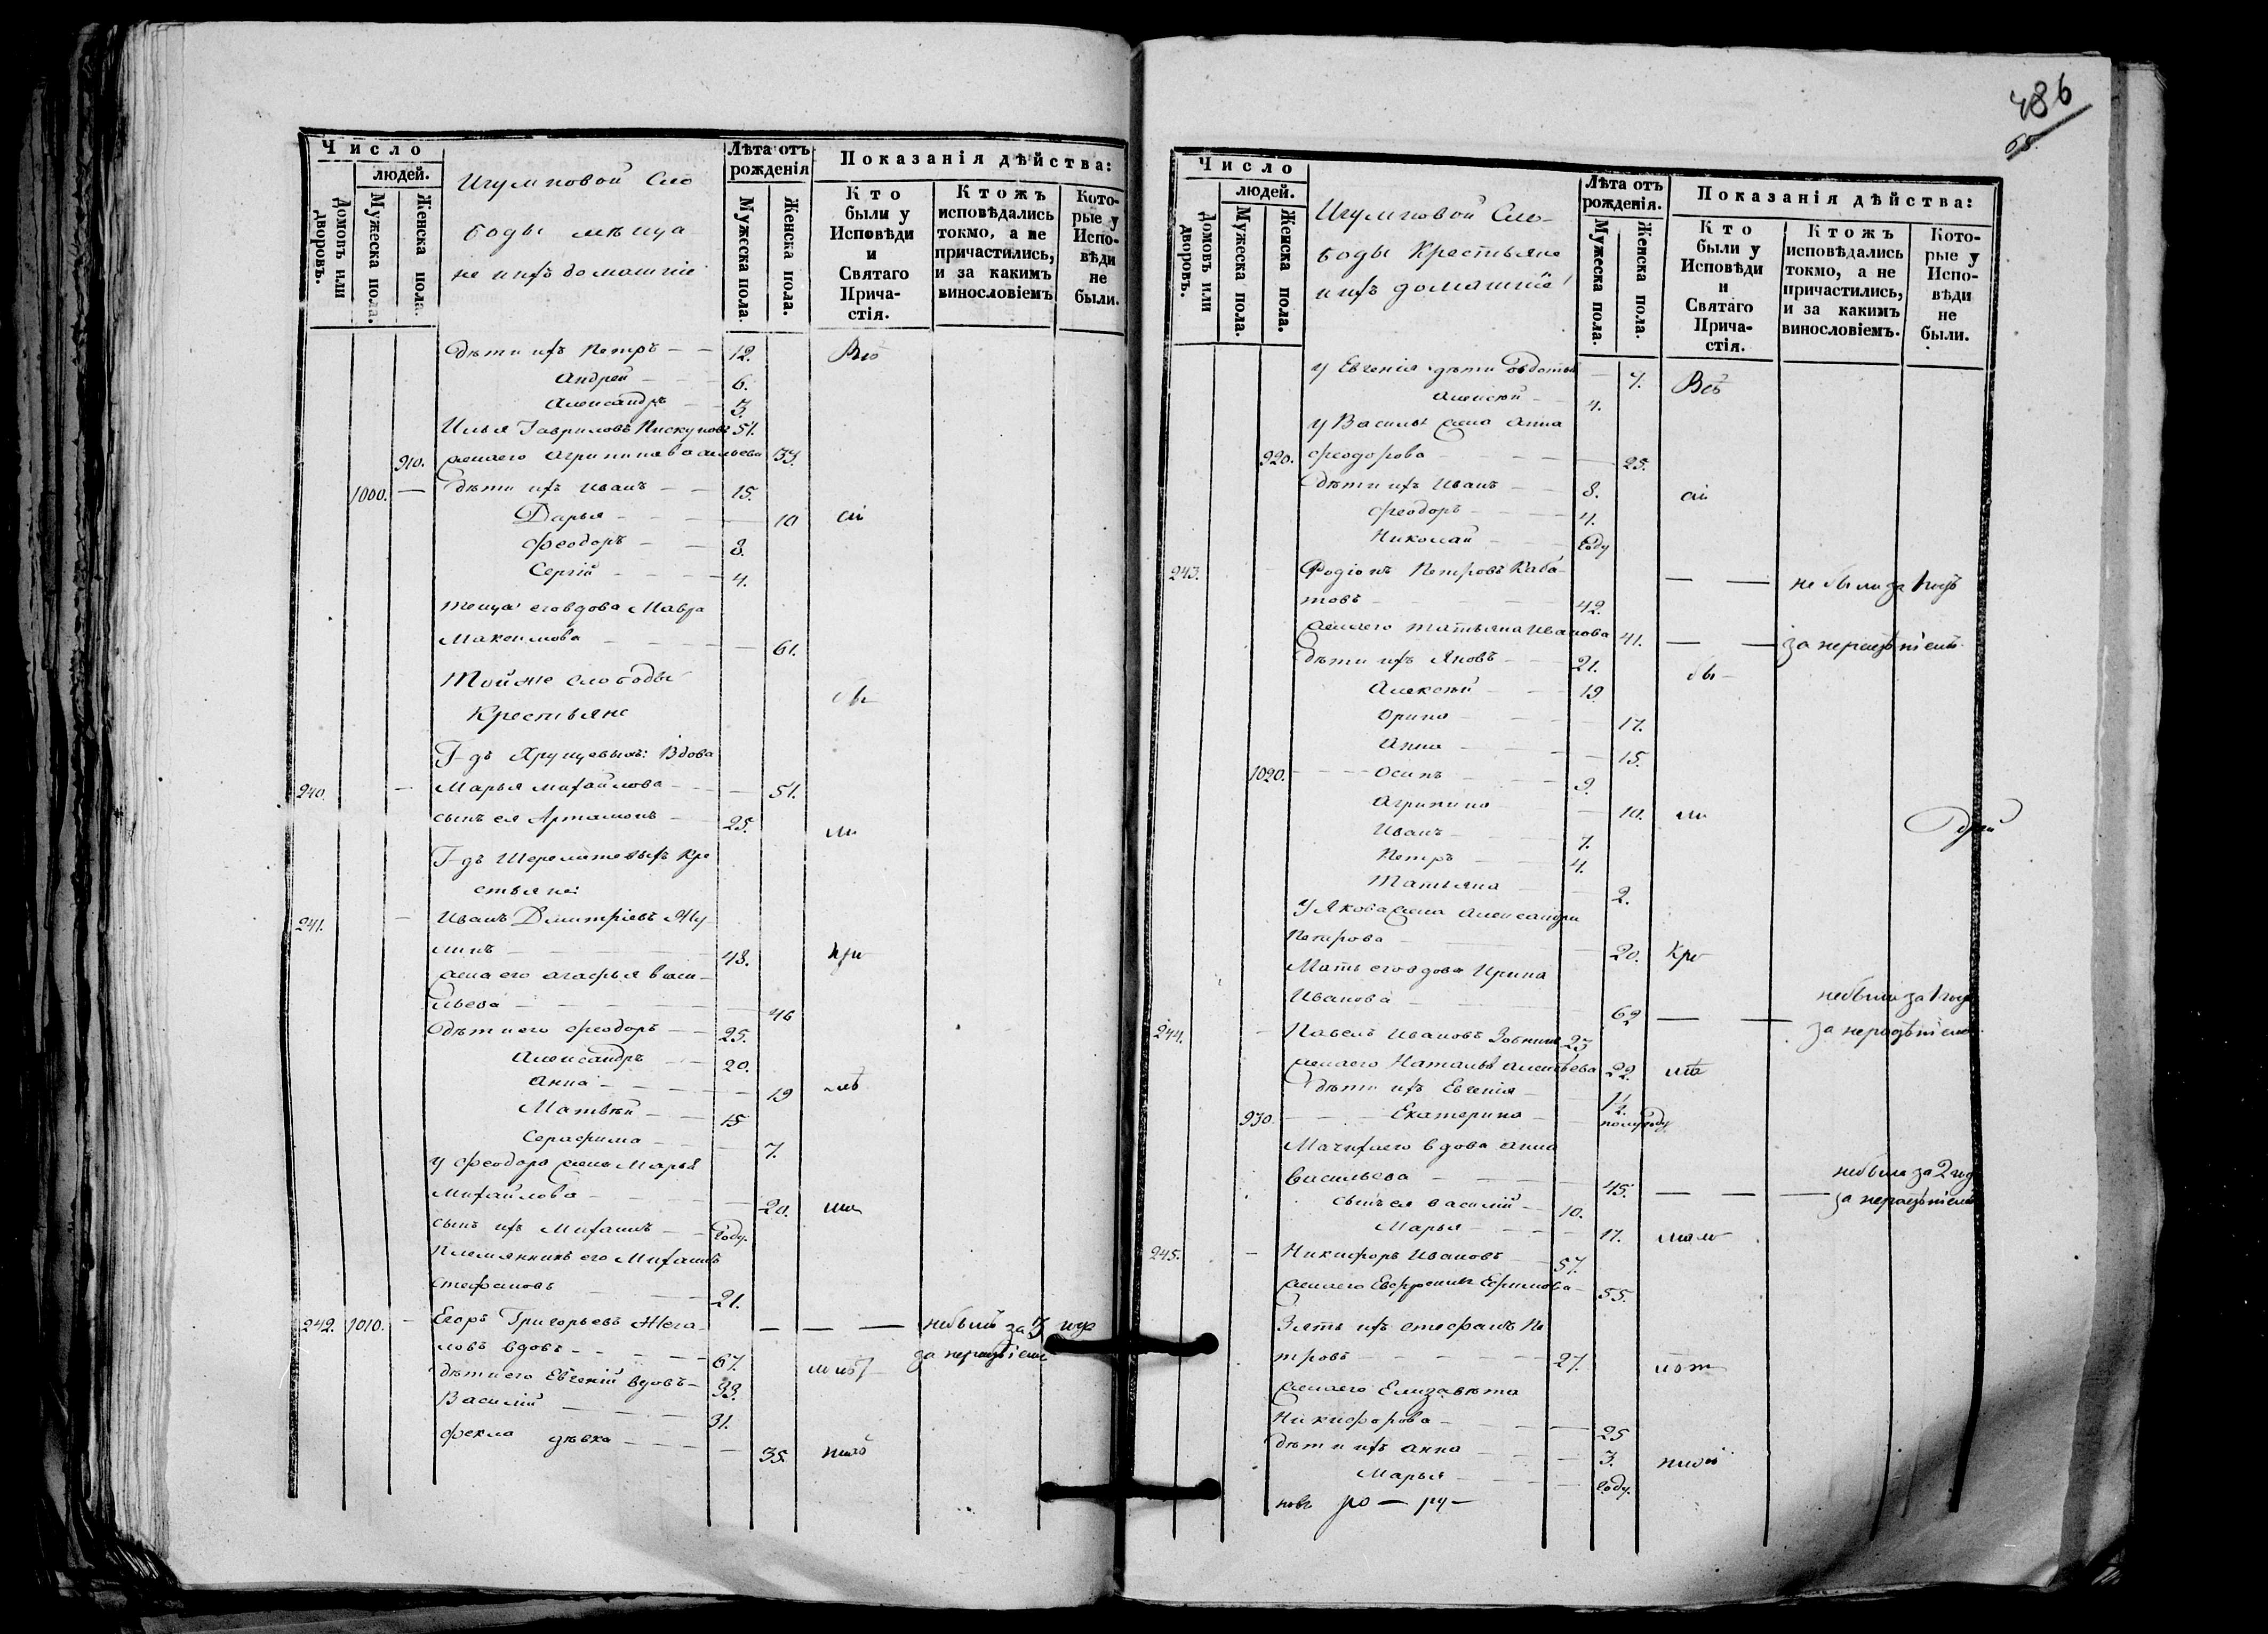 Число
людей.
Домовъ или дворовъ.
Мужеска пола.
Женска пола.
Игумновой Сло
боды мѣща
не и ихъ домашніе
Лѣта отъ рожденія
Мужеска пола.
Женска пола.
Показанія дѣйства:
Кто были у Исповѣди и Святаго Прича-стія.
Ктожъ исповѣдались токмо, а не причастились, и за какимъ винословіемъ
Кото-рые у Испо-вѣди не были.
дѣти ихъ Петръ — — 12. Всѣ
Андрей — — 6.
Александръ — — 3.
Илья Гавриловъ Пискуновъ 51.
910. жена его Агрипина Васильева 33.
1000. — дѣти ихъ Иванъ — — 15.
Дарья — — — 10 сіи
Феодоръ — — 8.
Сергій — — — 4.
теща его вдова Мавра
Максимова — — — — 61.
Тойже слободы
Крестьяне
Г-дъ Хрущевыхъ: Вдова
240. — Марья Михайлова — — — 51.
сынъ ея Артамонъ — 25. ли
Г-дъ Шереметевыхъ Кре
стьяне:
241. — Иванъ Дмитріевъ
линъ — — — 48. кро
жена его Агафья Васи-
льева — — — — — 46
дѣти его Феодоръ — — 25.
Александръ — — 20.
Анна — — — — 19
Матвѣй — — 15
Серафима — — — 7.
у Феодора жена Марья
Михайлова — — — 20.
сынъ ихъ Михаилъ — году.
Племянникъ его Михаилъ
Стефановъ — — 21.
242. 1010. — Егоръ Григорьевъ Жега- — — — не былъ за 3 года
ловъ вдовъ — — — 67. за нерадѣніемъ
дѣти его Евгеній вдовъ — 33.
Василій — — — 31.
Фекла дѣвка — — — — 35.
486
Число
людей.
Домовъ или дворовъ.
Мужеска пола.
Женска пола.
Игумновой Сло-
боды Крестьяне
и ихъ домашніе
Лѣта отъ рожденія.
Мужеска пола.
Женска пола.
Показанія дѣйства:
Кто были у Исповѣди и Святаго Прича-стія.
Ктожъ исповѣдались токмо, а не причастились, и за какимъ винословіемъ.
Кото-рые у Испо-вѣди не были.
у Евгенія дѣти Овдотья — 7. Всѣ
Алексѣй — — 4.
у Василья жена Анна
920. Феодорова — — — — 25.
дѣти ихъ Иванъ — — 8. сіи
Феодоръ — — — — 4.
Николай — — — году
243. Родіонъ Петровъ Каба- — — не были за 1 годъ
товъ — — — — 42.
жена его Татьяна Иванова 41. — — за нерадѣніемъ
дѣти ихъ Яковъ — — 21. бы-
Алексѣй — — 19
Орина — — — — 17.
Анна — — — 15.
1020. — — — Осипъ — — — 9.
Агрипина — — 10. ли
Иванъ — — — 7.
Петръ — — — 4.
Татьяна — — 2.
У Якова жена Александра
Петрова — — — — 20. кро
Мать его вдова Ирина
Иванова — — — 62 — — не была за 1 годъ
244. — Павелъ Ивановъ 23 за нерадѣніемъ
жена его Наталья Алексѣева 22.
дѣти ихъ Евгенія — 1½.
930. — — — Екатерина — — полугоду
Мачиха его вдова Анна
Васильева — — — 45. — — — не была за 2 года
сынъ ея Василій — 10. за нерадѣніемъ
Марья — — — — 17.
245. — Никифоръ Ивановъ — — 57.
жена его Ефросинья Ефимова — 55.
Зять ихъ Стефанъ Пе
тровъ — — — — 27.
жена его Елизавета
Никифорова — — — — 25
дѣти ихъ Анна — — — 3.
Марья — — — году.